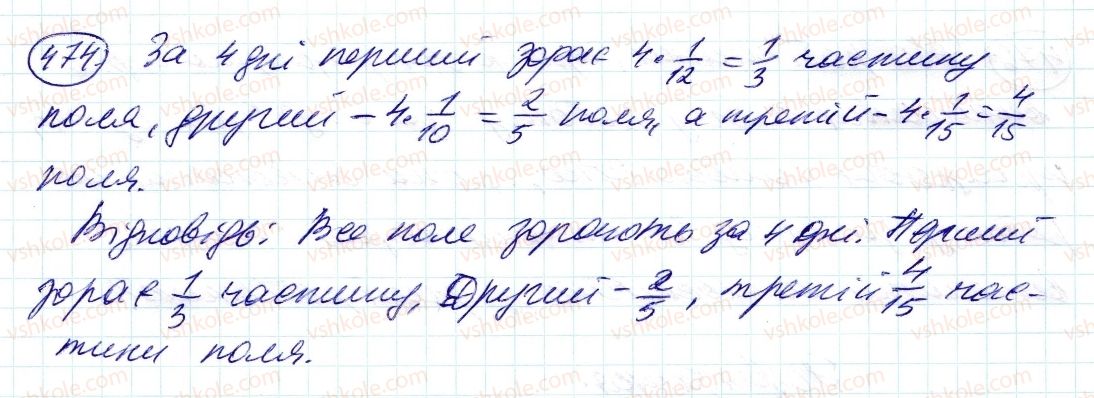 474 За 4 дні перший зорає 4 · 1/12 = 1/3 частину
поля, другий – 4 · 1/10 = 2/5 поля, а третій – 4 · 1/15 = 4/15
поля.
Відповідь: Все поле зорають за 4 дні. Перший
зорає 1/3 частину, другий – 2/5, третій 4/15 час-
тини поля.